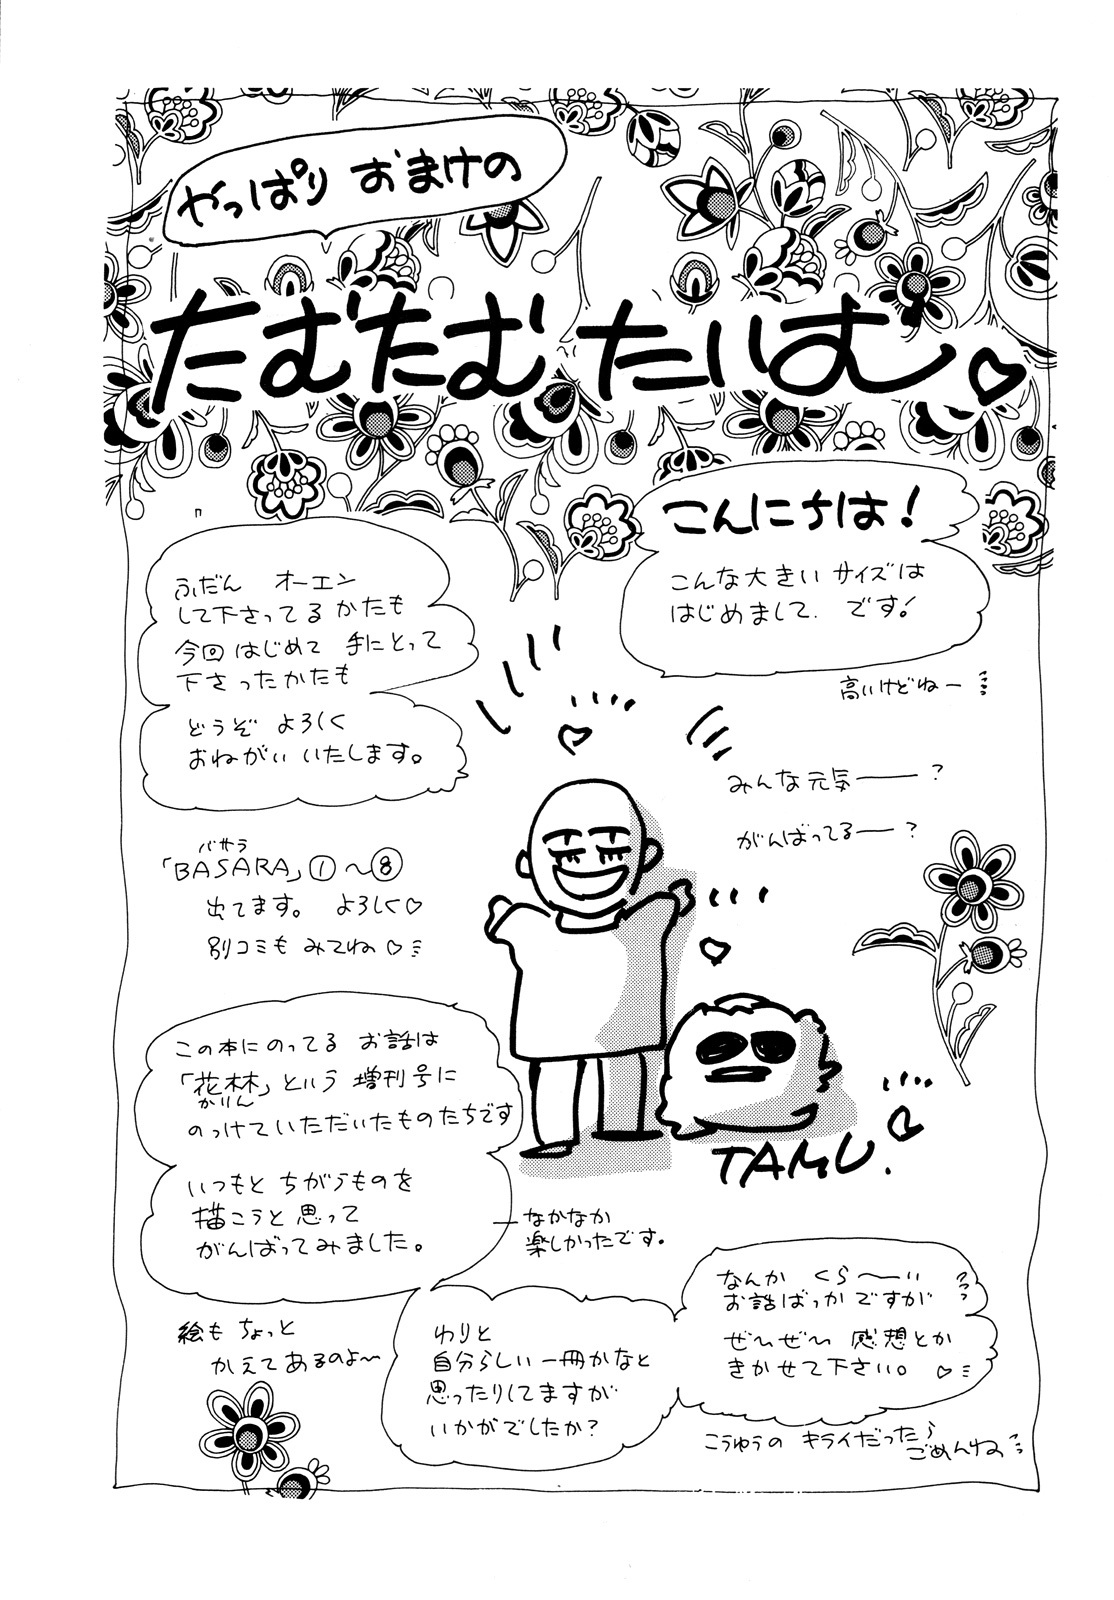 やっぱり おまけの
たむたむたいむ♡
こんにちは!
こんな大きい サイズは
はじめまして. です!
高いけどねー
ふだん オーエン
して下さってる かたも
今回 はじめて 手にとって
下さったかたも
どうぞ よろしく
おねがい いたします。
みんな元気――?
がんばってる――?
バサラ
「BASARA」①〜⑧
出てます。 よろしく♡
別コミも みてね♡
この本にのってる お話は
「花林」という 増刊号に
かりん
のっけていただいたものたちです
いつもと ちがうものを
描こうと 思って
がんばってみました。
なかなか
楽しかったです。
TAMU.
絵も ちょっと
かえてあるのよ〜
わりと
自分らしい 一冊かなと
思ったりしてますが
いかがでしたか?
なんか くら〜い
お話ばっかですが
ぜひぜひ 感想とか
きかせて下さい。♡
こうゆうの キライだったら
ごめんね